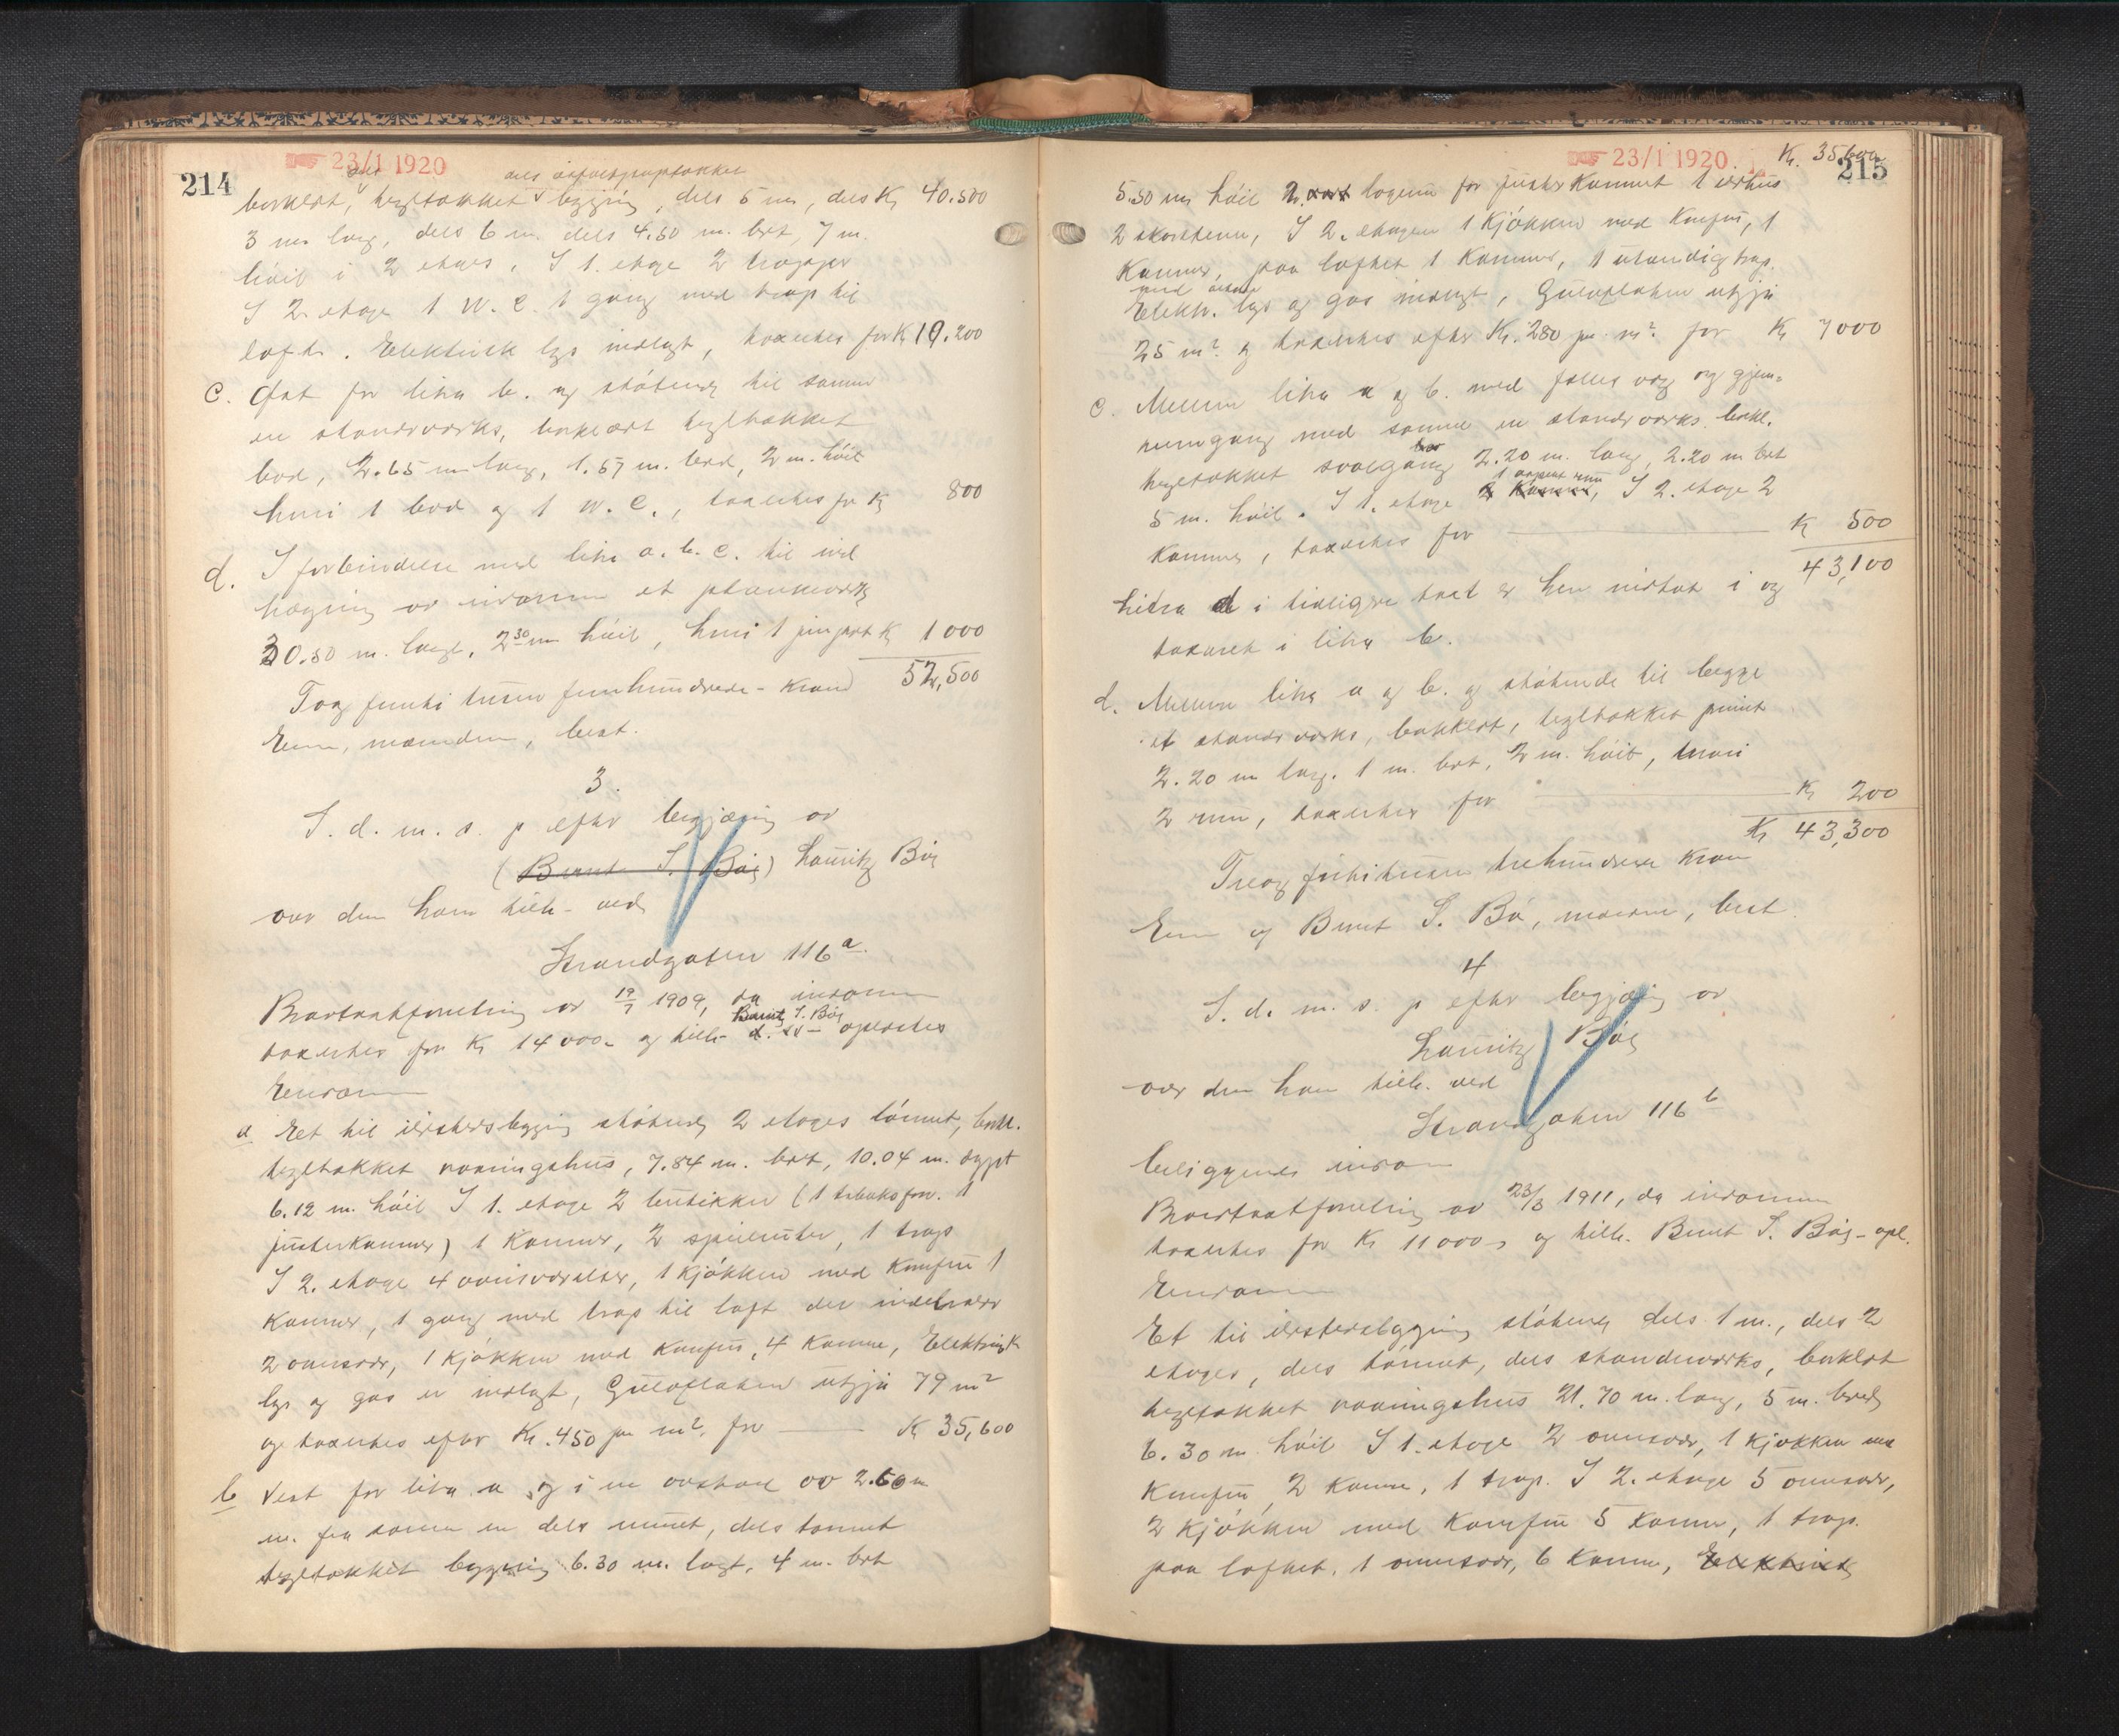 214
23/1 1920
dels asfaltpaptækket
bordklædt, tegltækket bygning, dels 5 m, dels Kr 40.500
3 m lang, dels 6 m. dels 4.50 m. bret, 7 m.
høit i 2 etages. I 1. etage 2 trapper
I 2. etage 1 W.C. 1 gang med trap til
loft. Elektrisk lys indlagt, taxertes for Kr 10.200
c. Øst for litra b. og støtende til samme
en standværks, bordklædt tegltækket
bod, 2.65 m lang, 1.57 m. bred, 2 m. høit
hvori 1 bod og 1 W.C., taxertes for Kr 800
d. I forbindelse med litra a. b. c. til ind
hegning av eiendommen et plankeværk
30.50 m. langt, 2.30 m høit, hvori 1 port Kr 1000
52,500
To og femti tusen femhundrede - Kroner
Eieren, mændene, best.
3.
S. d. m. s. p efter begjæring av
(Bernt S. Bøe) Lauritz Bøe
over den ham tilh. ved
Strandgaten 116 a.
Brandtaxtforretning av 19/7 1909, da eiendommen
taxertes for Kr 14000.- og tilh. Bernt S. Bøe oplæstes
Eiendommen
a Et til eiersidersbygning støtende 2 etages tømret, bordkl.
tegltækket vaaningshus, 7.84 m. bret, 10.04 m. dypt
6.12 m. høit I 1. etage 2 butikker (1 tobaksforr. 1
1 kammer, 2 speilruter, 1 trap
I 2. etage 4 ovnsværelser, 1 kjøkken med komfur 1
kammer, 1 gang med trap til loft der indeholder
2 ovnsvær, 1 kjøkken med komfur, 4 kammer, Elektrisk
lys og gas er indlagt, Gulvflaten utgjør 79 m²
og taxertes efter Kr. 450 pr m², for Kr 35,600
b Vest for litra a og i en avstand av 2.60 m
m. fra samme en dels muret, dels tømret
tegltækket bygning 6.30 m. langt, 4 m. bret
23/1 1920.
Kr. 35600
215
5.50 m høit 2 etages for 1 vaskehus
2 skorstene, I 2. etagen 1 kjøkken med komfur, 1
kammer, paa loftet 1 kammer, 1 utvendig trap.
Elektr. lys og gas indlagt, Gulvflaten utgjør
25 m² og taxertes efter Kr. 280 pr. m² for Kr 7000
c. Mellem litra a og b. med fælles væg og gjen-
nemgang med samme en standværks bordkl.
tegltækket svalgang 2.20 m. lang, 2.20 m bret
5 m. høit. I 1. etage 1 aapent rum, I 2. etage 2
kammer, taxertes for Kr 500
43,100
Litra d i tidligere taxt er her indtat i og
taxeret i litra b.
d. Mellem litra a og b. og støtende til begge
et standværks, bordklædt, tegltækket
2.20 m lang. 1 m. bret, 2 m. høit, hvori
2 rum, taxertes for Kr 200
Kr 43,300
Tre og firti tusen trehundrede Kroner
Eieren og Bernt S. Bøe, mændene, best.
4
S. d. m. s. p efter begjæring av
Lauritz Bøe
over den ham tilh. ved
Strandgaten 116 b
beliggende eiendom
Brandtaxtforretning av 23/3 1911, da eiendommen
taxertes for Kr 11000,- og tilh. Bernt S. Bøe - opl.
Eiendommen
Et til eiersidersbygning støtende dels 1 m., dels 2
etages, dels tømret, dels standverks, bordklædt
tegltækket vaaningshus 21.70 m. lang, 5 m. bred,
6.30 m. høit I 1. etage 2 ovnsvær, 1 kjøkken med
komfur, 2 kammer, 1 trap. I 2. etage 5 ovnsvær,
2 kjøkken med komfur 5 kammer, 1 trap.
paa loftet, 1 ovnsvær, 6 kammer, Elektrisk